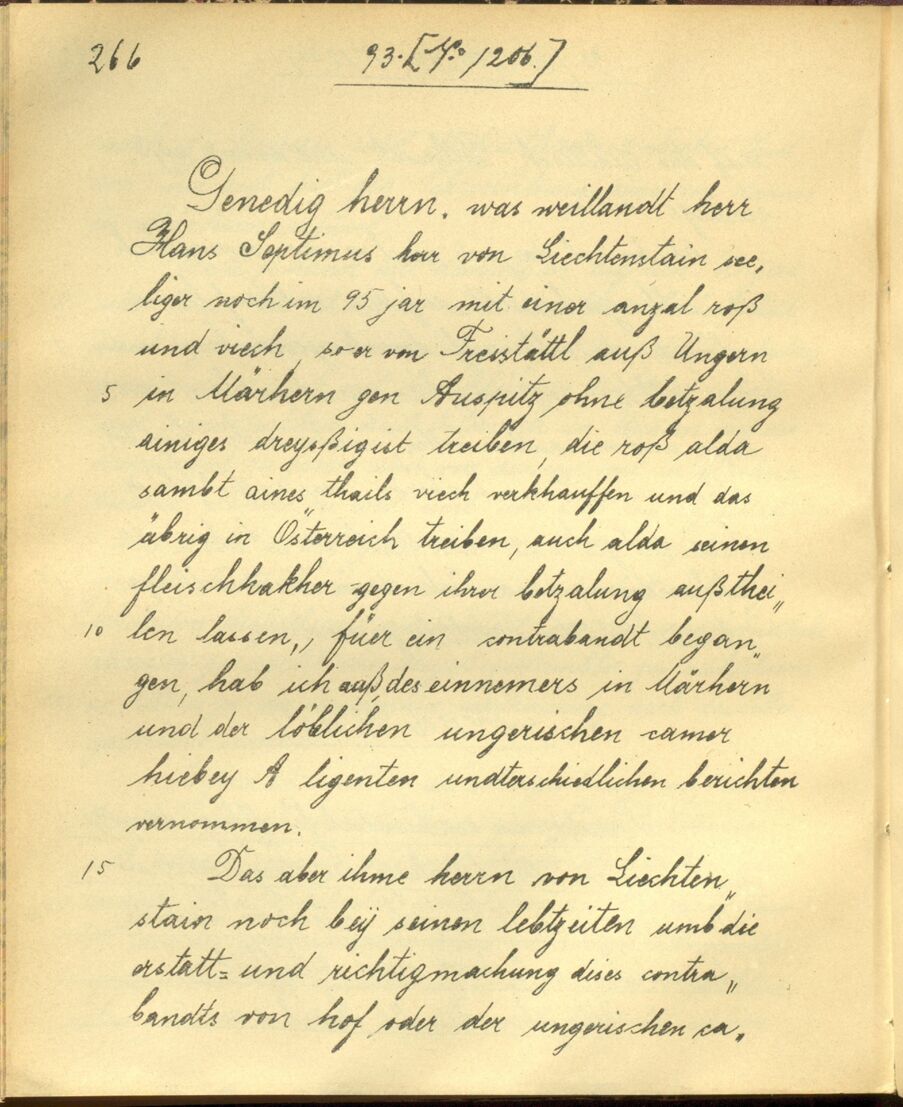 266
93. [No 1206.]
Genedig herrn, was weillandt herr
Hans Septimus herr von Liechtenstain see„
liger noch im 95 jar mit einer anzal roß
und viech, so er von Freistättl auß Ungern
5 in Märhern gen Auspitz ohne betzalung
ainiges dreyßigist treiben, die roß alda
sambt aines thails viech verkhauffen und das
übrig in Österreich treiben, auch alda seinen
fleischhakher gegen ihrer betzalung außthei„
10 len lassen, füer ein contrabandt began„
gen, hab ich auß des einnemers in Märhern
und der löblichen ungerischen camer
hiebey A ligenten undterschiedlichen berichten
vernommen.
15 Das aber ihme herrn von Liechten„
stain noch beÿ seinen lebtzeiten umb die
erstatt= und richtigmachung dises contra„
bandts von hof oder der ungerischen ca„